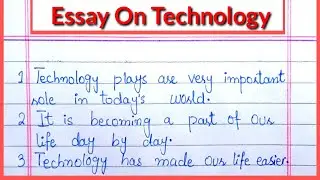 Essay On Technology
1 Technology plays are very important
role in today's world.
2 It is becoming a part of our
life day by day.
3 Technology has made our life easier.